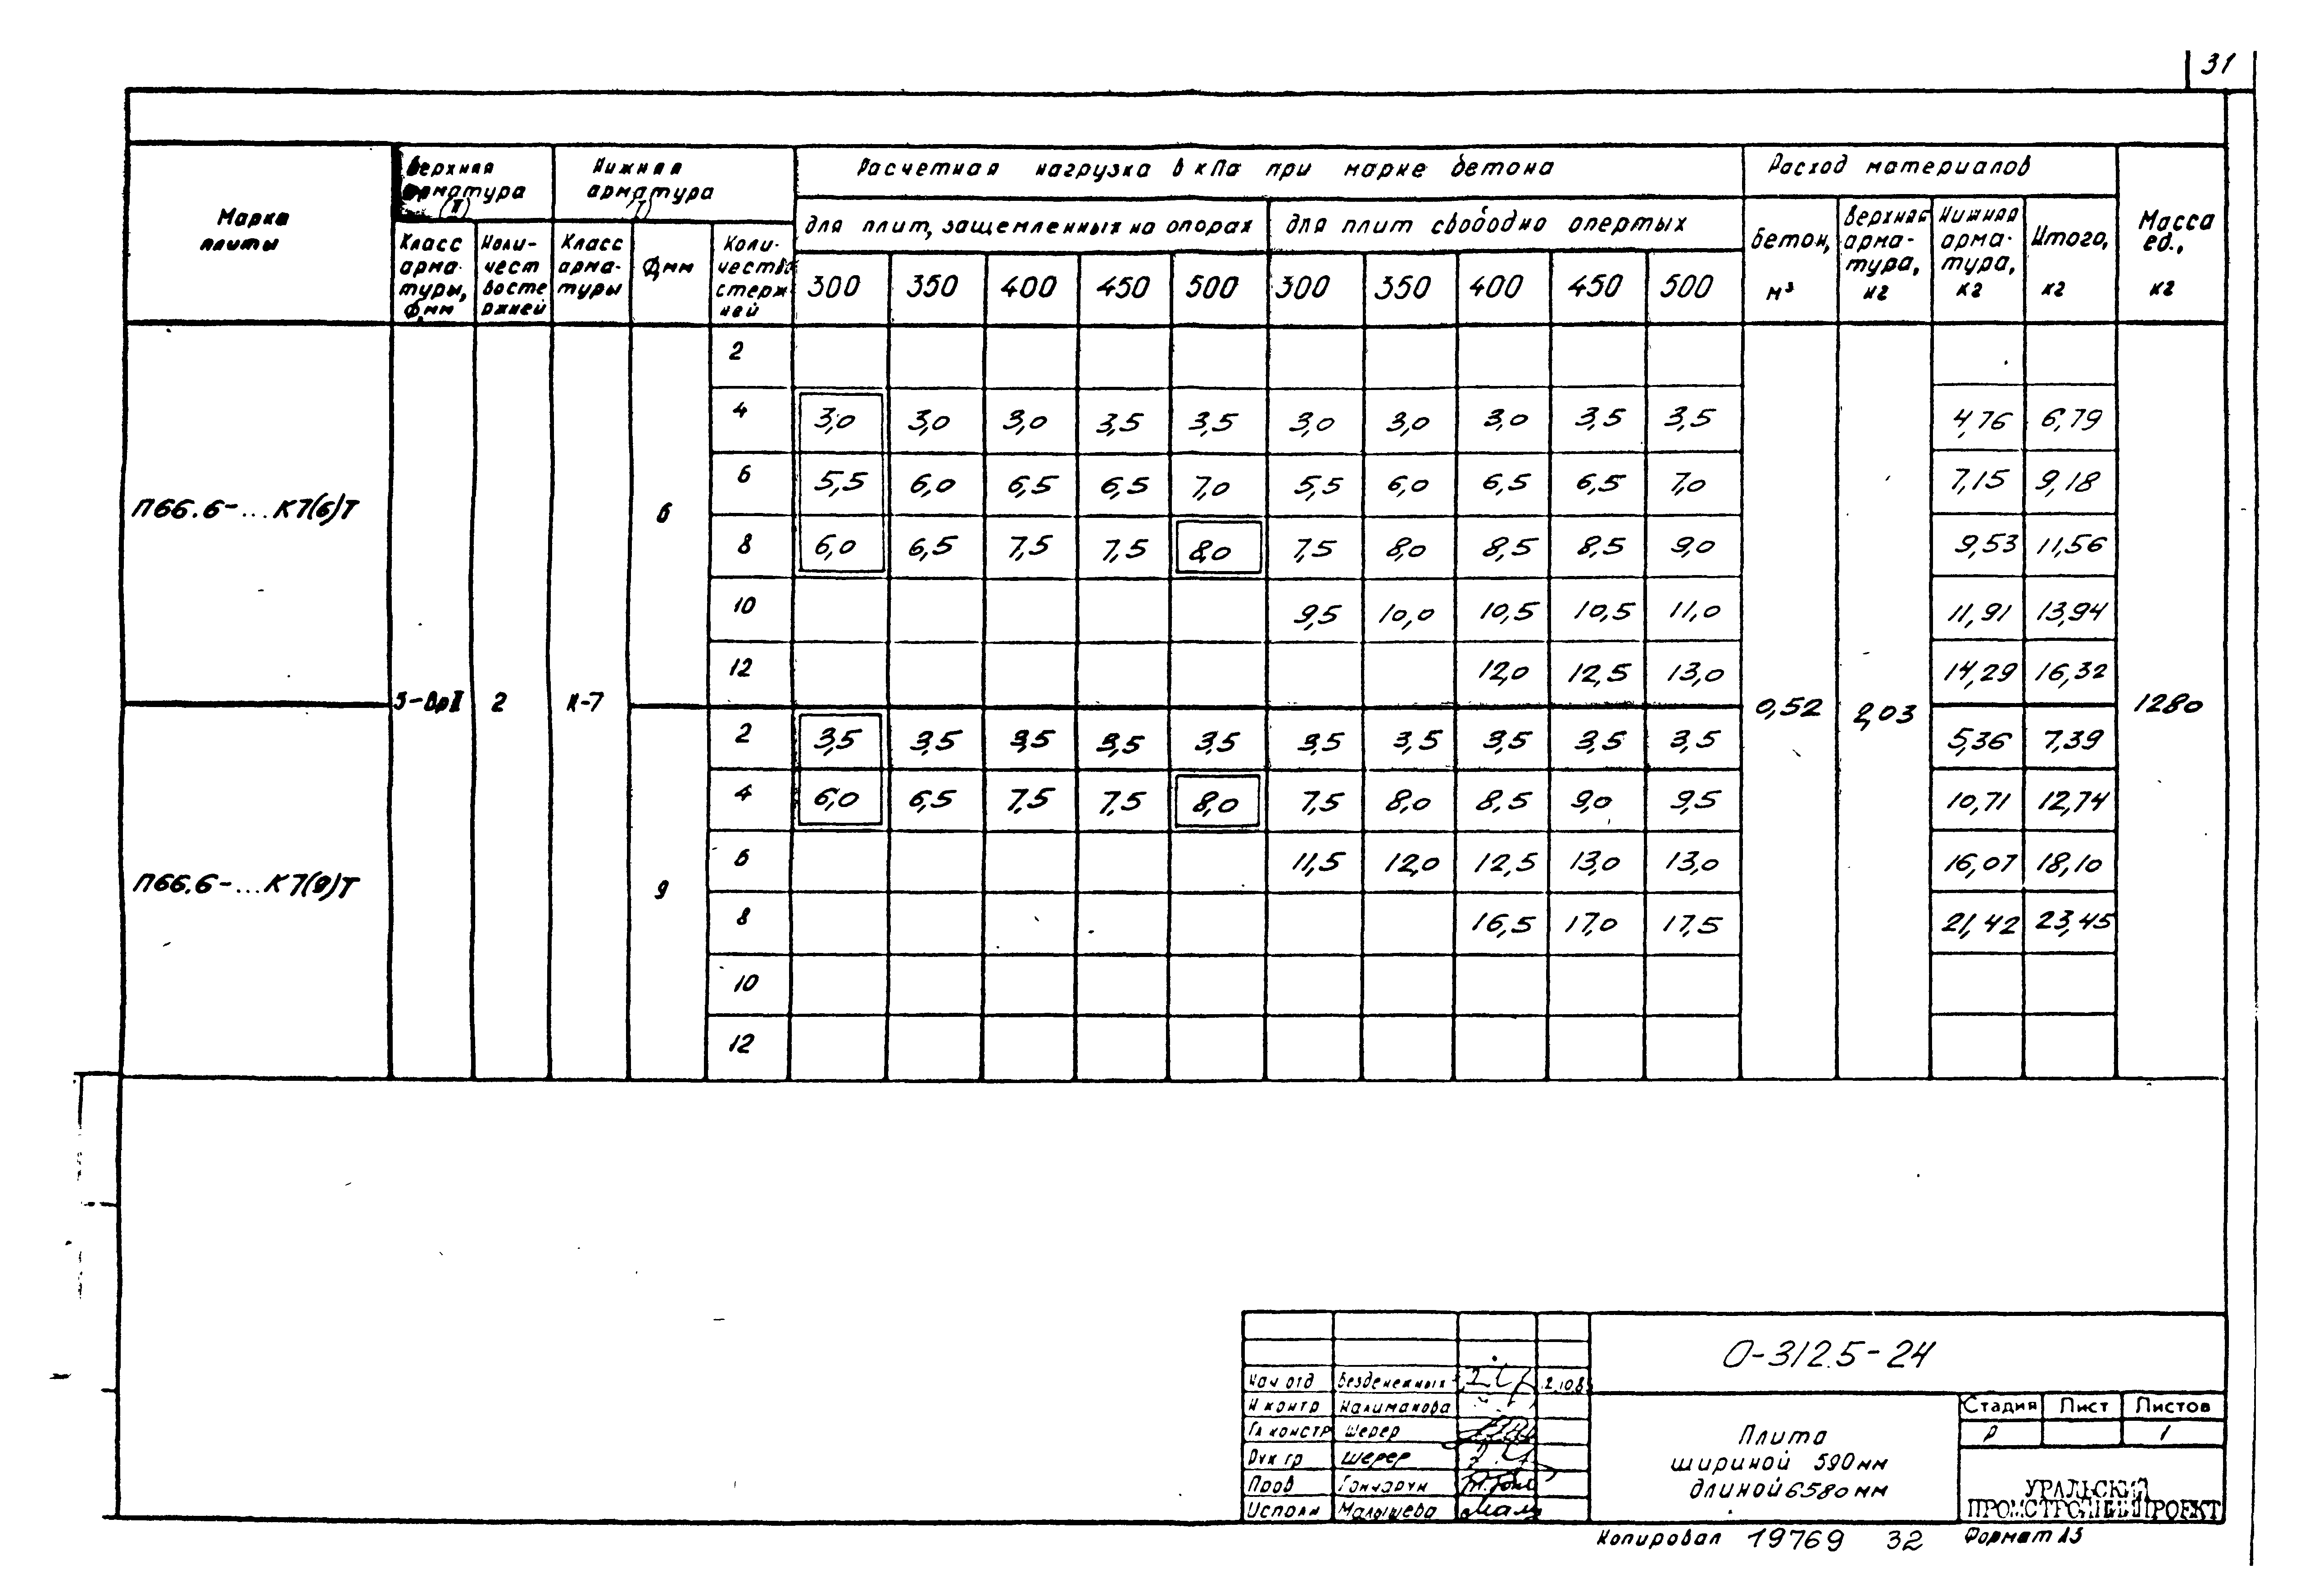 31
Марка плиты
Верхняя арматура (II)
Нижняя арматура (I)
Расчетная нагрузка в кПа при марке бетона
Расход материалов
Масса ед., кг
для плит, защемленных на опорах
для плит свободно опертых
Бетон, м³
Верхняя арма-тура, кг
Нижняя арма-тура, кг
Итого, кг
Класс арма-туры, Ф,мм
Коли-чест во сте ржней
Класс арма-туры
Ф,мм
Коли-чество стерж ней
300 350 400 450 500 300 350 400 450 500
П66.6-...К7(6)Т
5-ВрII 2 К-7
6
2
4 3,0 3,0 3,0 3,5 3,5 3,0 3,0 3,0 3,5 3,5 4,76 6,79
6 5,5 6,0 6,5 6,5 7,0 5,5 6,0 6,5 6,5 7,0 7,15 9,18
8 6,0 6,5 7,5 7,5 8,0 7,5 8,0 8,5 8,5 9,0 9,53 11,56
10 9,5 10,0 10,5 10,5 11,0 11,91 13,94
12 12,0 12,5 13,0 14,29 16,32
0,52 2,03 1280
П66.6-...К7(9)Т
9
2 3,5 3,5 3,5 3,5 3,5 3,5 3,5 3,5 3,5 3,5 5,36 7,39
4 6,0 6,5 7,5 7,5 8,0 7,5 8,0 8,5 9,0 9,5 10,71 12,74
6 11,5 12,0 12,5 13,0 13,0 16,07 18,10
8 16,5 17,0 17,5 21,42 23,45
10
12
О-312.5-24
Нач отд Безденежных
Н контр Калиманова
Гл констр Шерер
Рук гр Шерер
Пров Гончарун
Исполн Малышева
Плита
шириной 590мм
длиной 6580мм
Стадия Лист Листов
Р 1
УРАЛЬСКИЙ
ПРОМСТРОЙНИИПРОЕКТ
Копировал 19769 32 Формат А3